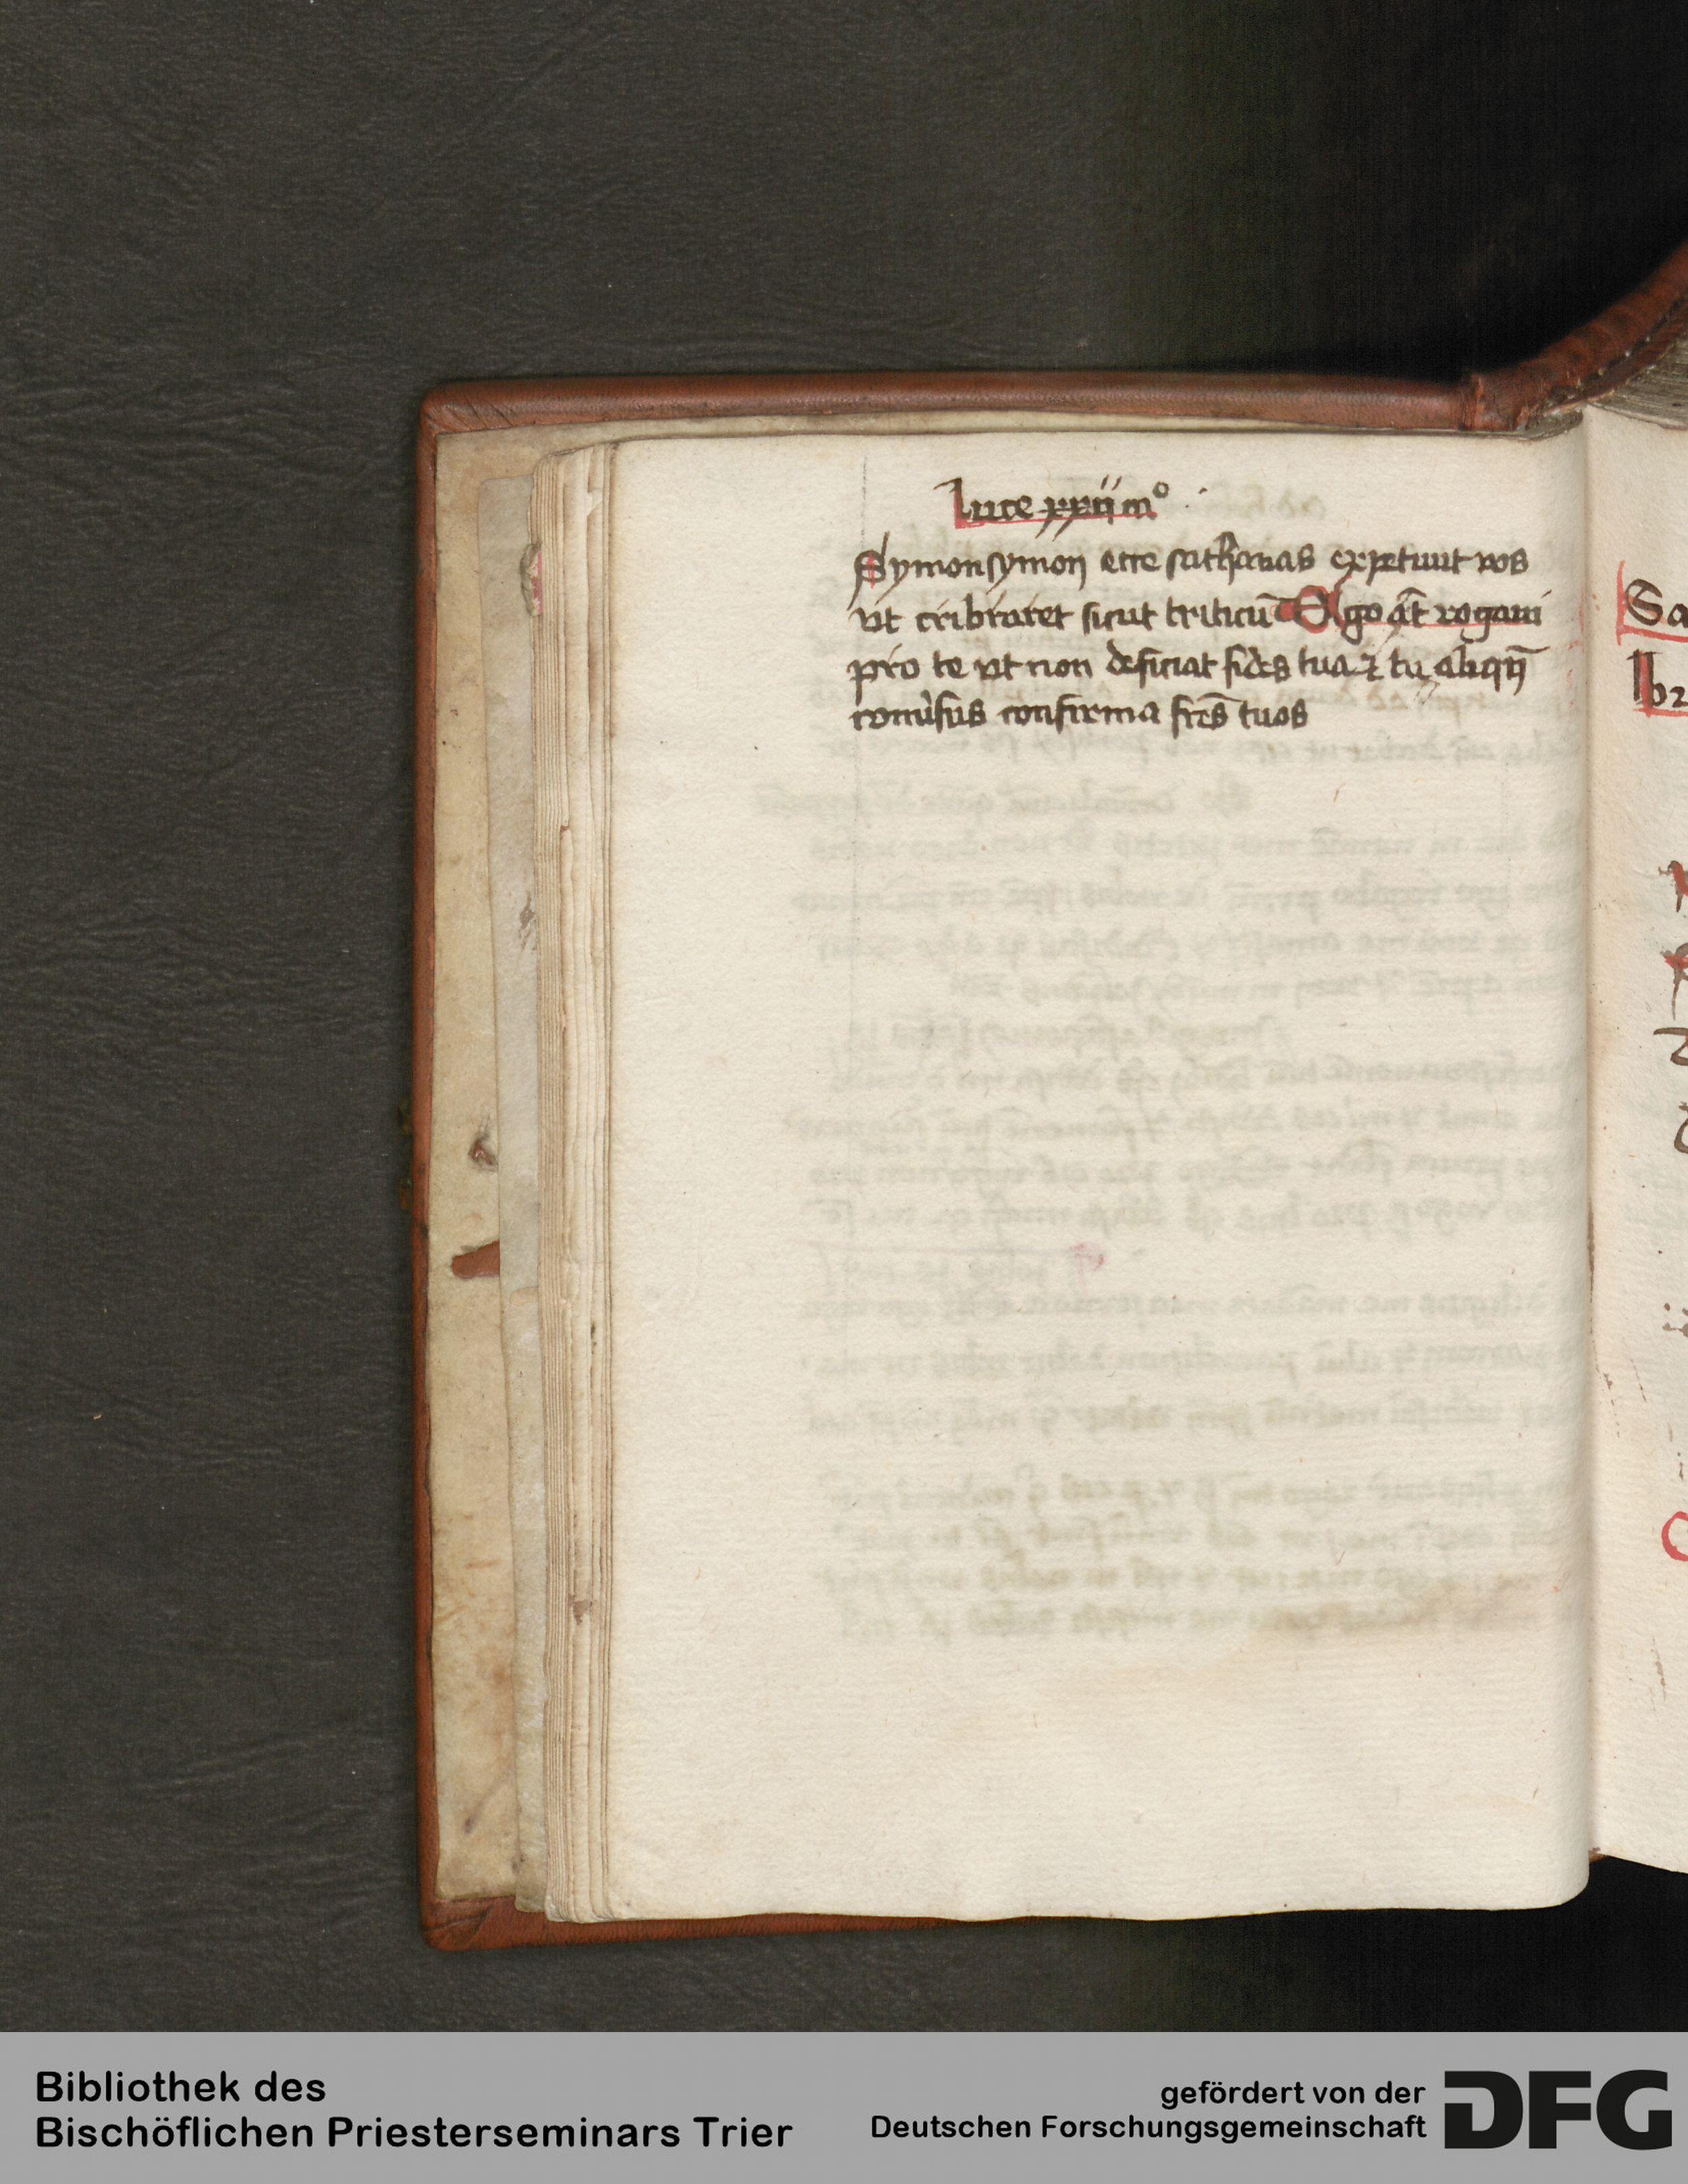 Luce xxijmº
Symon symon ecce sathanas expetiuit vos
vt cribraret sicut triticū Ego aūt rogaui
pro te vt non deficiat fides tua ⁊ tu aliqn̄
conuˀsus confirma fr̄es tuos
Sa
Bibliothek des
Bischöflichen Priesterseminars Trier
gefördert von der
Deutschen Forschungsgemeinschaft
DFG